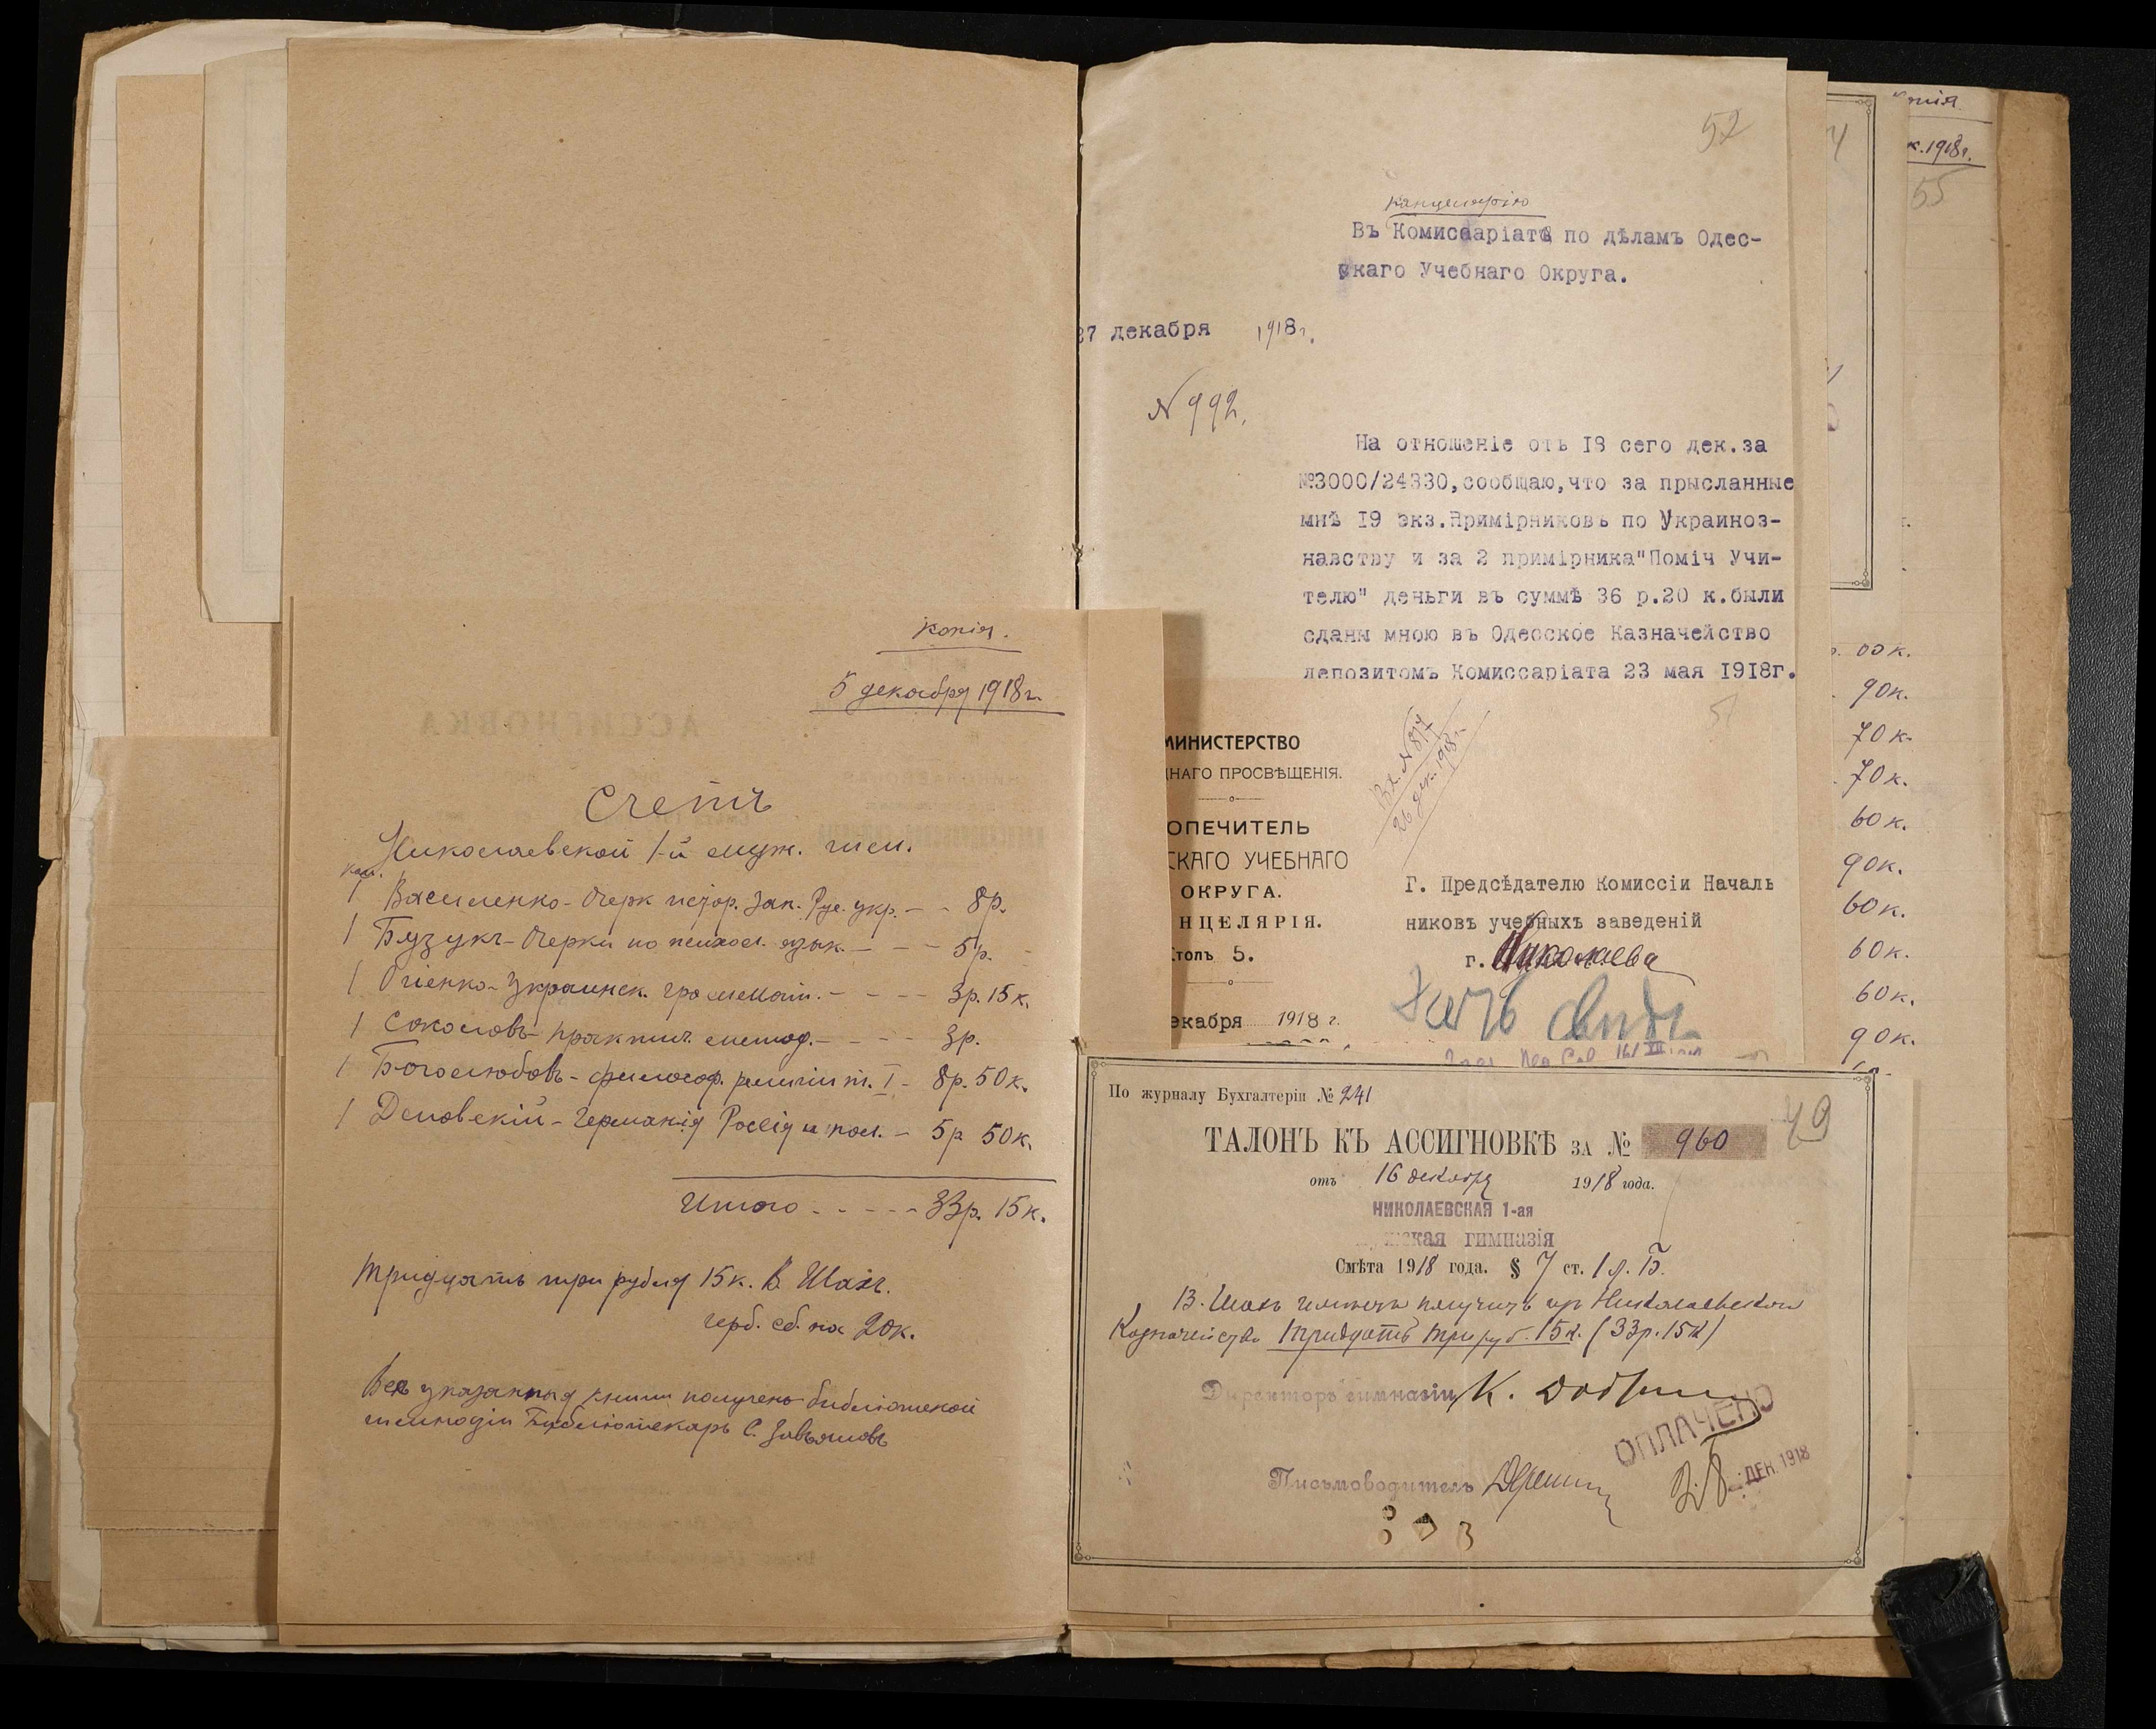 Копія.
5 декабря 1918 г.
Счетъ
Николаевской 1-й муж. гим.
1 Василенко - Очерк истор. Зап. Рус. укр. - - 8 р.
1 Бузукъ - Очерки по психол. язык. - - - 5 р.
1 Огіенко - Украинск. граммат. - - - - 3 р. 15 к.
1 Соколовъ - практич. метод. - - - - 3 р.
1 Боголюбовъ - философ. религіи т. I - 8 р. 50 к.
1 - Германія Россія и - 5 р. 50 к.
Итого - - - - - 33 р. 15 к.
Тридцать три рубля 15 к. В. Шахъ.
герб. сб. на 20 к.
Все указанныя книги получены библіотекой
гимназіи Библіотекарь С. Завьяловъ
52
канцелярію
Въ Комиссаріатъ по дѣламъ Одес-
скаго Учебнаго Округа.
27 декабря 1918 г.
N 992.
На отношеніе отъ I8 сего дек.за
№3000/24330,сообщаю,что за прысланные
мнѣ I9 экз.Примірниковъ по Украиноз-
навству и за 2 примірника"Поміч Учи-
телю" деньги въ суммѣ 36 р.20 к.были
сданы мною въ Одесское Казначейство
депозитомъ Комиссаріата 23 мая I9I8г.
Вх. N 817
26 дек. 1918 г.
МИНИСТЕРСТВО
НАГО ПРОСВѢЩЕНІЯ.
ОПЕЧИТЕЛЬ
СКАГО УЧЕБНАГО
ОКРУГА.
НЦЕЛЯРІЯ.
толъ 5.
екабря 1918 г.
Г. Предсѣдателю Комиссіи Началь
никовъ учебныхъ заведеній
г. Николаева
По журналу Бухгалтеріи № 241
49
ТАЛОНЪ КЪ АССИГНОВКѢ ЗА № 960
отъ 16 декабря 1918 года.
НИКОЛАЕВСКАЯ 1-ая
жская гимназія
Смѣта 1918 года. § 7 ст. 1 л. Б.
В. Шахъ имѣетъ получить изъ Николаевскаго
Казначейства тридцать три руб. 15 к. (33 р. 15 к)
Директоръ гимназіи К.
ОПЛАЧЕНО
28 ДЕК. 1918
Письмоводитель
опія
к. 1918 г.
55
00 к.
90 к.
70 к.
70 к.
60 к.
90 к.
60 к.
60 к.
60 к.
90 к.